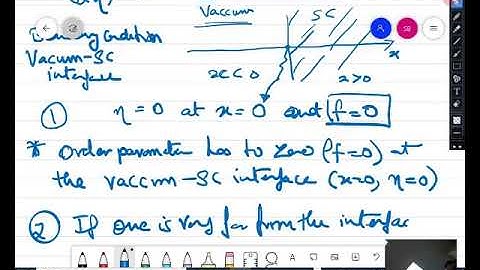 Vaccum SC
Boundary condition
Vacum-SC
interface
x<0 x>0
x
① η=0 at x=0 and f=0
* Order parameter has to zero (f=0) at
the vaccum-SC interface (x=0, η=0)
② If one is very far from the interfac
SB